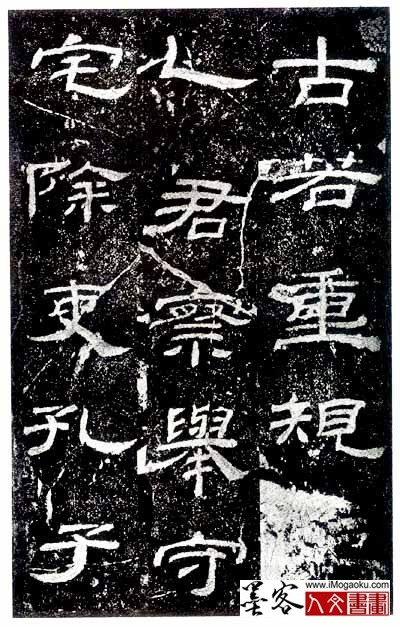 古若重規
乙君察舉守
宅除吏孔子
墨客 www.iMogaoku.com
人文書畫